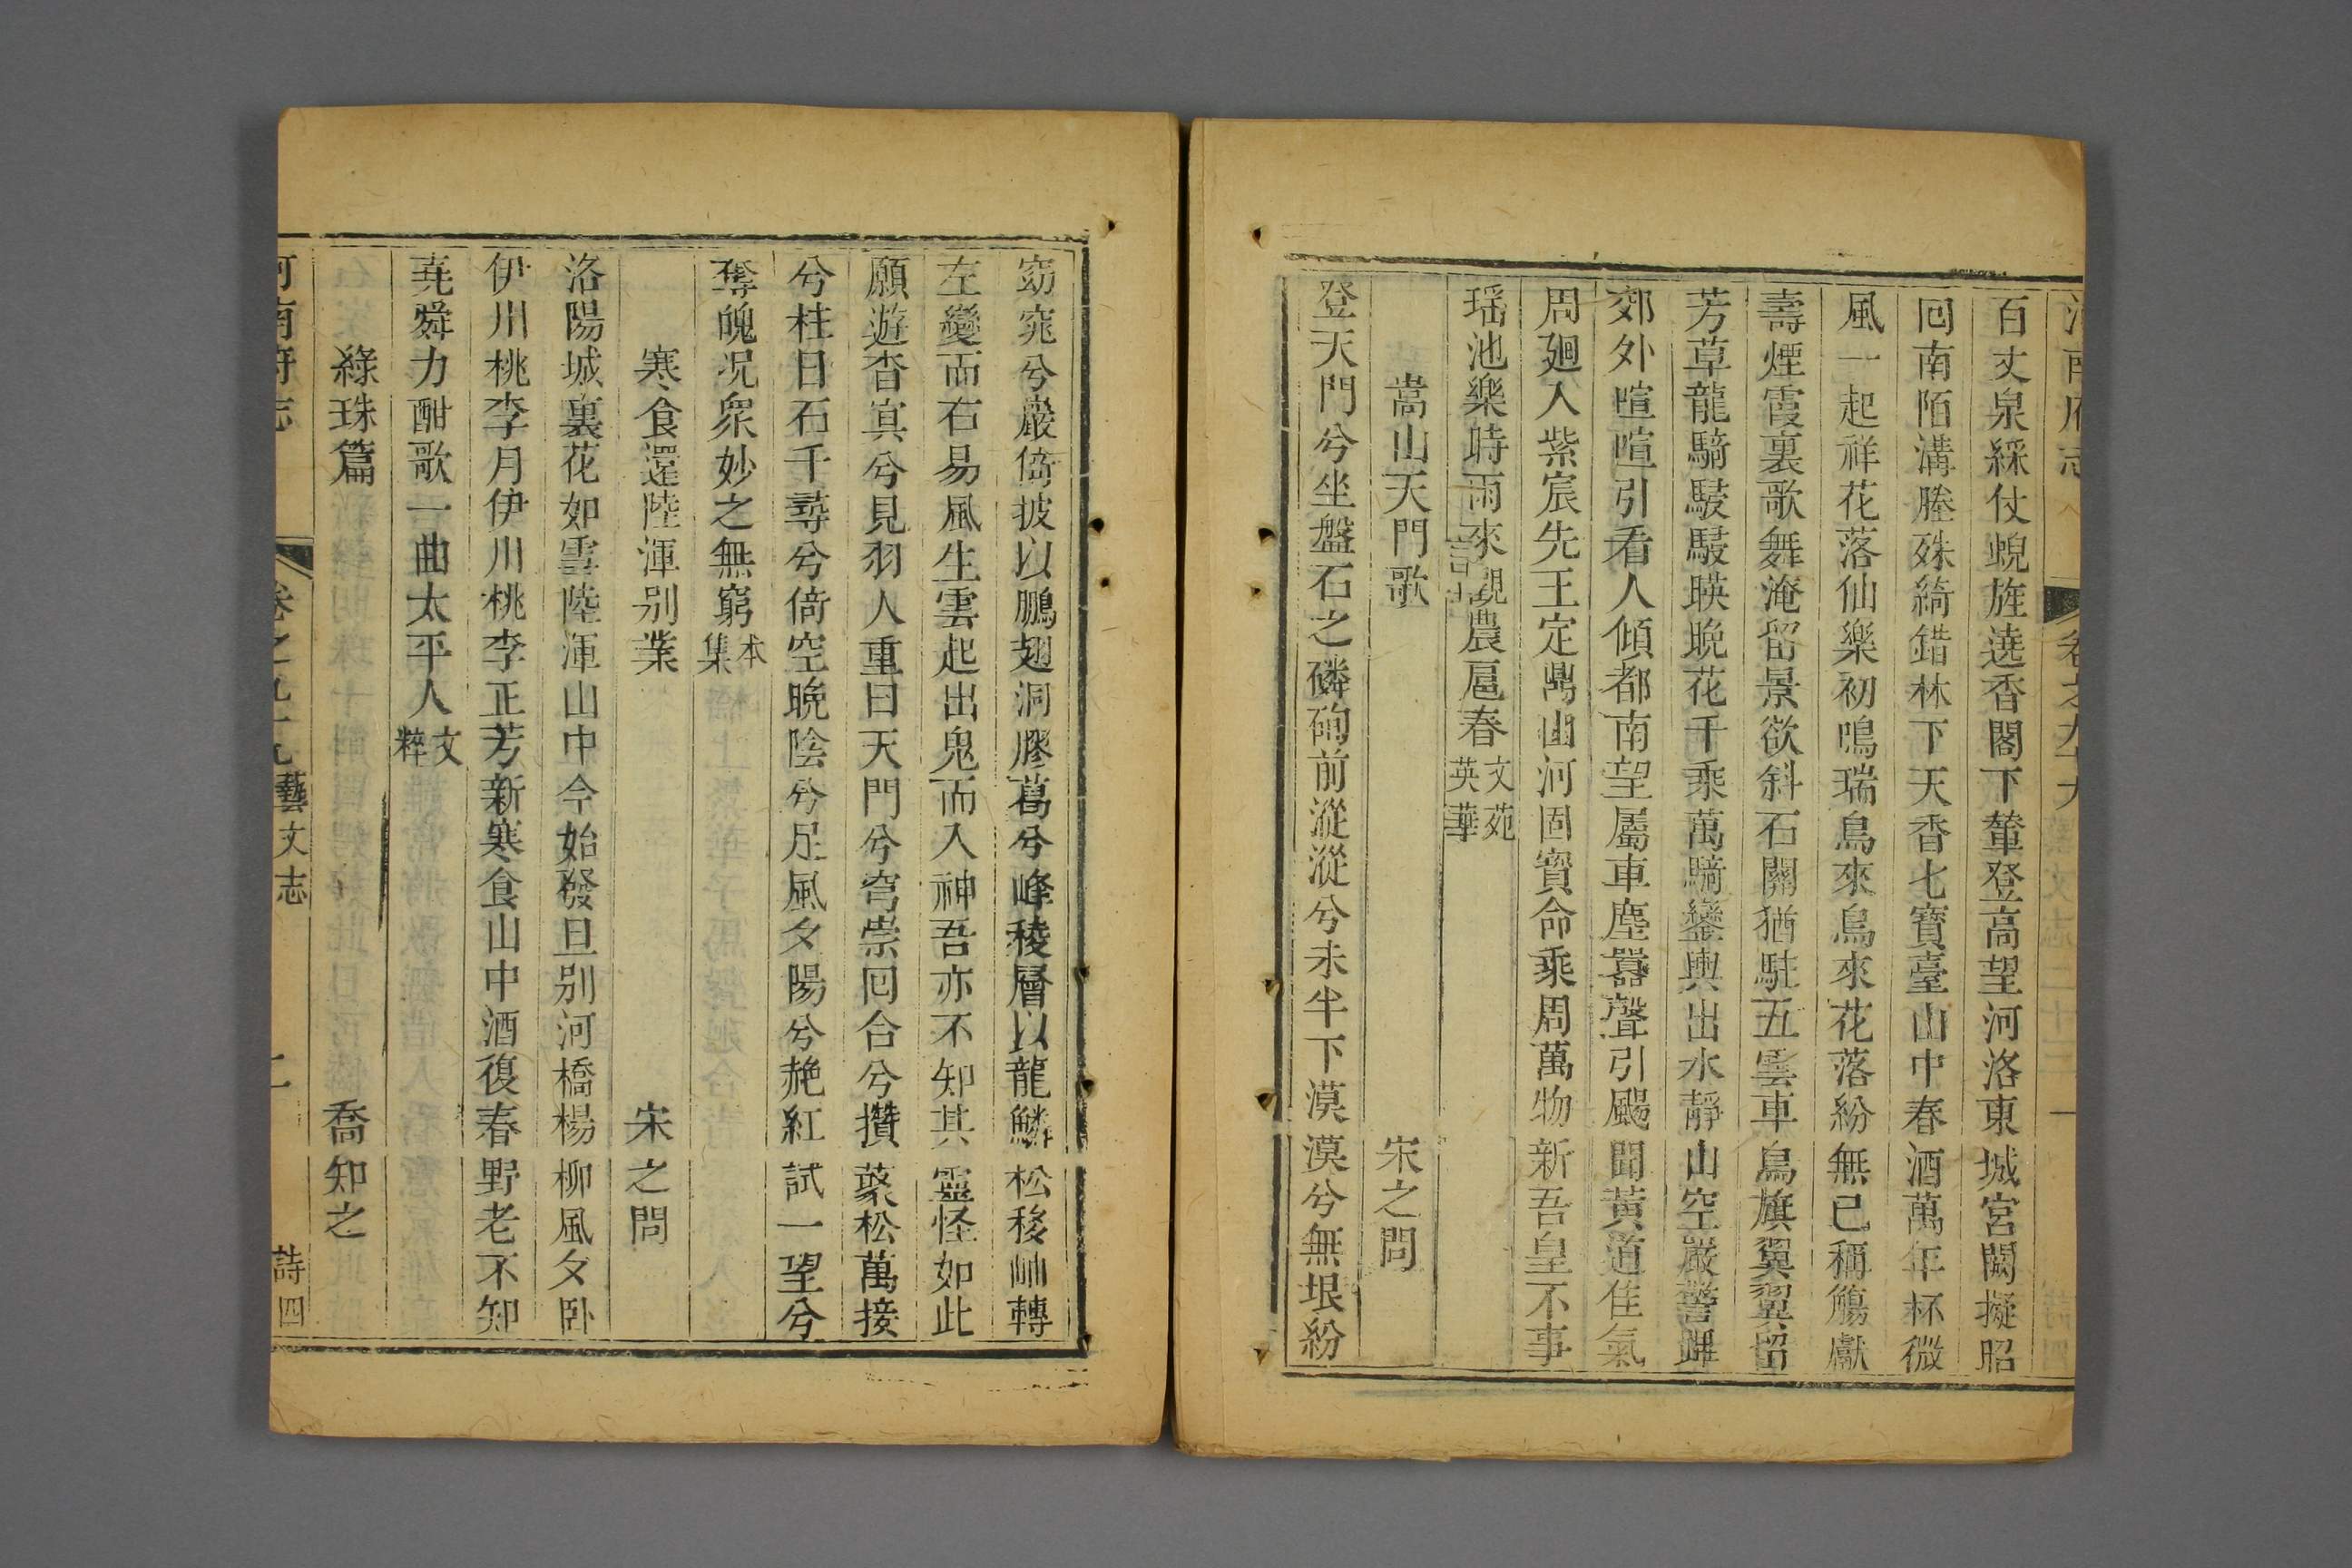 百丈泉綵仗蜺旌遶香閣下輦登高望河洛東城宮闕擬昭
回南陌溝塍殊綺錯林下天香七寶臺山中春酒萬年杯微
風一起祥花落仙樂初鳴瑞鳥來鳥來花落紛無已稱觴獻
壽煙霞裏歌舞淹留景欲斜石關猶駐五雲車鳥旗翼翼留
芳草龍騎駸駸暎晚花千乘萬騎鑾輿出水靜山空嚴警蹕
郊外喧喧引看人傾都南望屬車塵囂聲引颺聞黃道隹氣
周廻入紫宸先王定鼎山河固寶命乘周萬物新吾皇不事
瑶池樂時雨來觀農扈春文苑英華
嵩山天門歌 宋之問
登天門兮坐盤石之磷砢前漎漎兮未半下漠漠兮無垠紛
窈窕兮巖倚披以鵬翅洞膠葛兮峰稜層以龍鱗松移岫轉
左變而右易風生雲起出鬼而入神吾亦不知其靈怪如此
願遊杳㝠兮見羽人重曰天門兮穹崇回合兮攢叢松萬接
兮柱日石千尋兮倚空晩陰兮足風夕陽兮赩紅試一望兮
奪魄况衆妙之無窮本集
寒食還陸渾别業 宋之問
洛陽城裏花如雪陸渾山中今始發旦别河橋楊柳風夕卧
伊川桃李月伊川桃李正芳新寒食山中酒復春野老不知
堯舜力酣歌一曲太平人文粹
綠珠篇 喬知之
河南府志 卷之九十九 藝文志 詩四